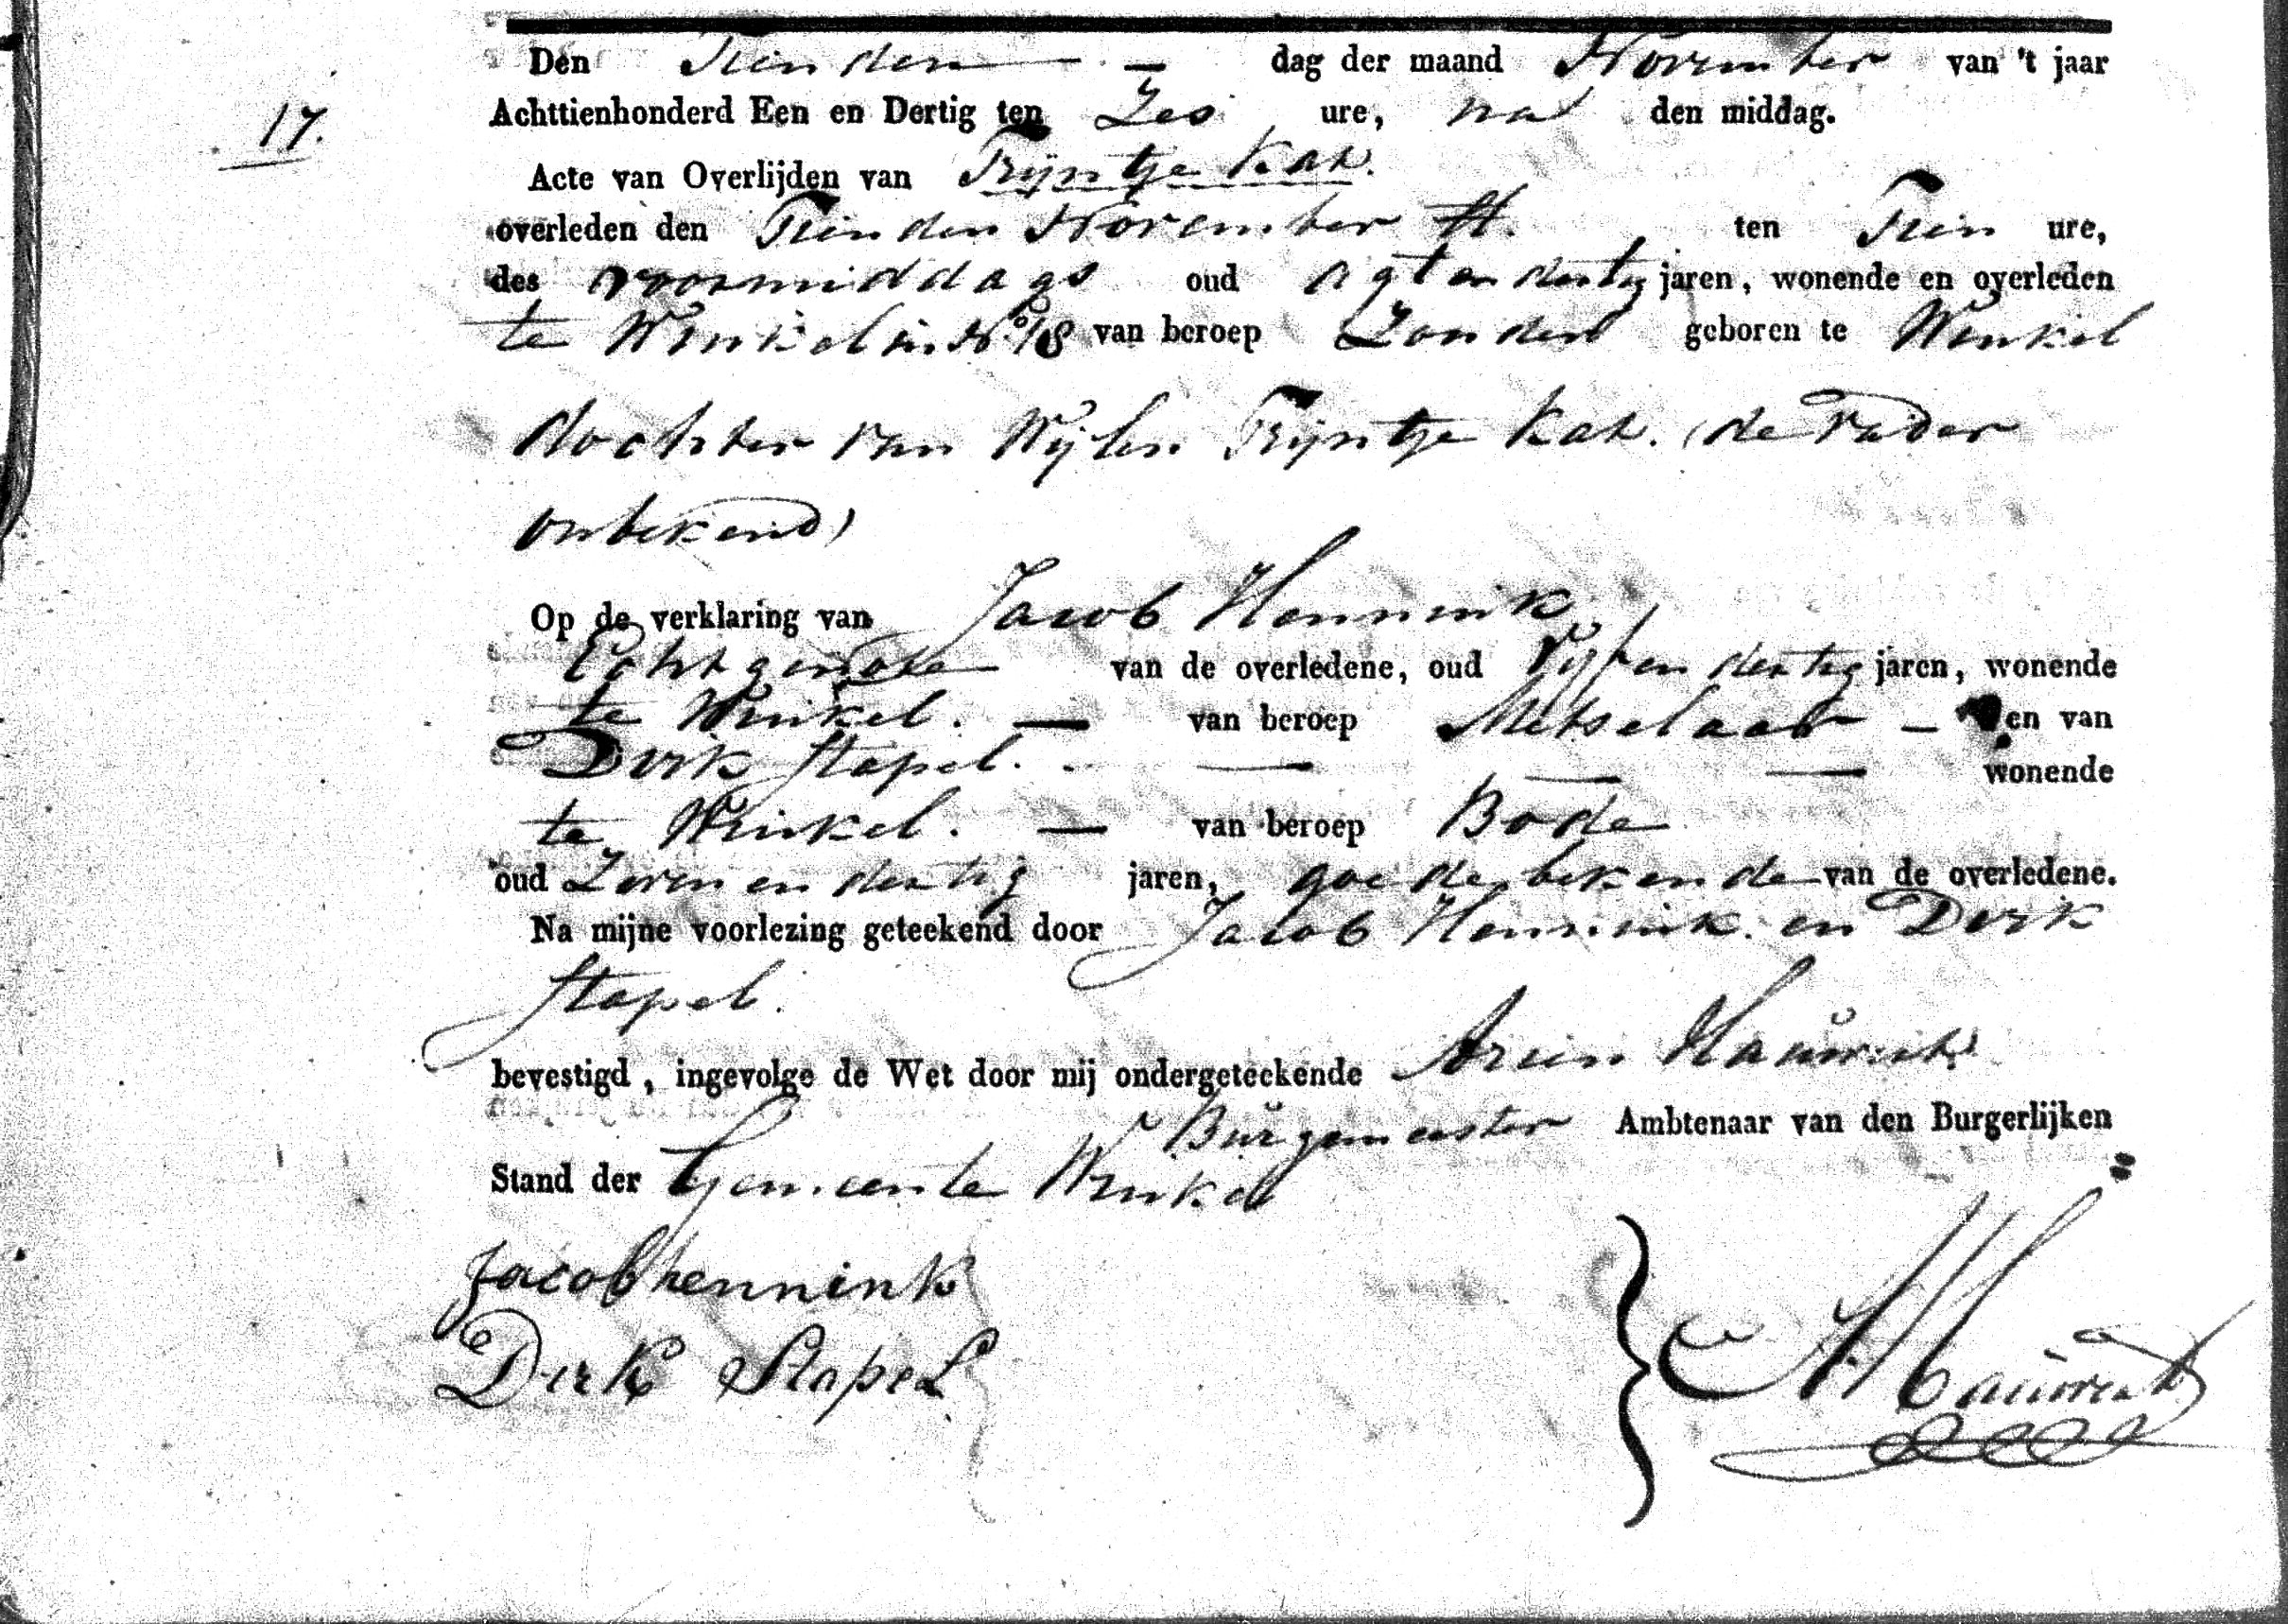 Den Tienden — dag der maand November van 't jaar
17.
Achttienhonderd Een en Dertig ten Zes ure, na den middag.
Acte van Overlijden van Trijntje Kat.
overleden den Tienden November ten Tien ure,
des voormiddags oud agt en dertig jaren, wonende en overleden
te Winkel in No. 18 van beroep Zonder geboren te Winkel
dochter van Wijlen Trijntje Kat. (de Vader
onbekend)
Op de verklaring van Jacob Hennink
Echtgenoote van de overledene, oud Vijf en dertig jaren, wonende
te Winkel. — van beroep Metselaar — en van
Dirk Stapel. — — — wonende
te Winkel. — van beroep Bode
oud Zeven en dertig jaren, goede bekende van de overledene.
Na mijne voorlezing geteekend door Jacob Hennink en Dirk
Stapel.
bevestigd, ingevolge de Wet door mij ondergeteekende
Burgemeester Ambtenaar van den Burgerlijken
Stand der Gemeente Winkel
Jacob hennink
Dirk Stapel